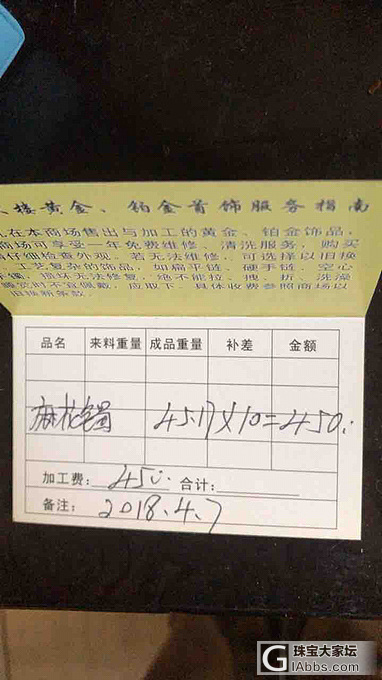 楼黄金、铂金首饰服务指南
凡在本商场售出与加工的黄金、铂金饰品,
商场可享受一年免费维修、清洗服务,购买
请仔细检查外观。若无法维修,可选择以旧换
工艺复杂的饰品,如扁平链、硬手链、空心
损坏无法修复。绝不能拉、拽、折、洗澡
睡觉时不宜佩戴,应取下。具体收费参照商场以
旧换新条款。
品名 来料重量 成品重量 补差 金额
麻花镯 45.17×10=450.
加工费:450. 合计:
备注:2018.4.7
G 珠宝大家坛
iAbbs.com